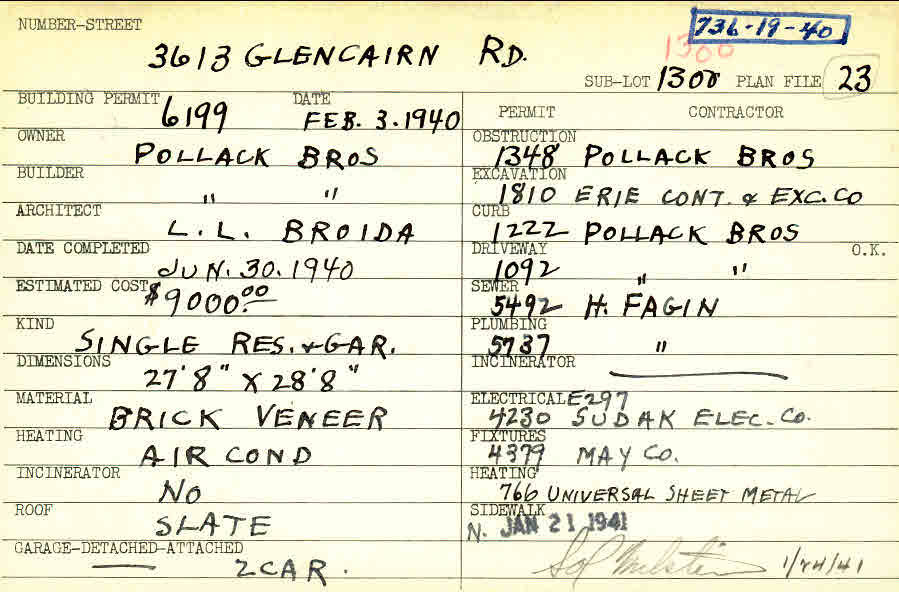 NUMBER-STREET
736-19-40
3613 GLENCAIRN RD.
1300
SUB-LOT 1300 PLAN FILE 23
BUILDING PERMIT 6199 DATE FEB. 3. 1940
OWNER POLLACK BROS
BUILDER " "
ARCHITECT L. L. BROIDA
DATE COMPLETED JUN. 30. 1940
ESTIMATED COST $9000.00
KIND SINGLE RES. & GAR.
DIMENSIONS 27'8" X 28'8"
MATERIAL BRICK VENEER
HEATING AIR COND
INCINERATOR NO
ROOF SLATE
GARAGE-DETACHED-ATTACHED 2 CAR.
PERMIT CONTRACTOR
OBSTRUCTION 1348 POLLACK BROS
EXCAVATION 1810 ERIE CONT. & EXC. CO
CURB 1222 POLLACK BROS
DRIVEWAY 1092 " " O.K.
SEWER 5492 H. FAGIN
PLUMBING 5737 "
INCINERATOR
ELECTRICAL E297
4230 SUDAK ELEC. CO.
FIXTURES 4379 MAY CO.
HEATING 766 UNIVERSAL SHEET METAL
SIDEWALK N. JAN 21 1941
Sol Milstein 1/24/41